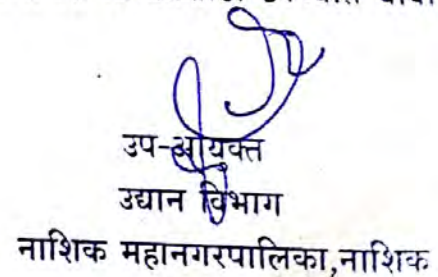 उप-आयुक्त
उद्यान विभाग
नाशिक महानगरपालिका,नाशिक